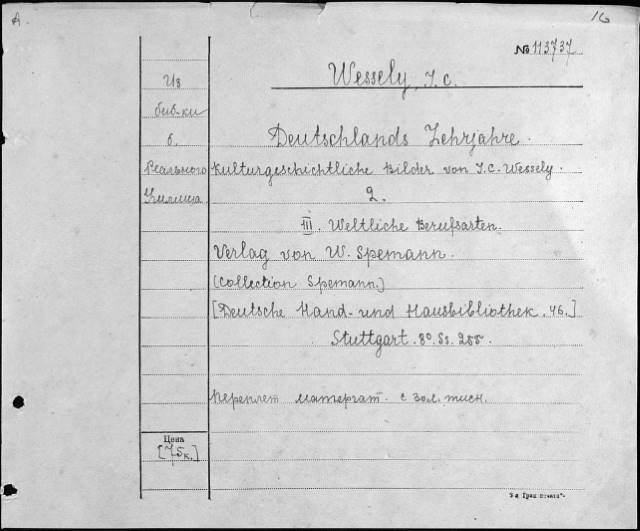 A
16
№ 113737
Из
биб-ки
б.
Реального
Училища
Wessely, J. C.
Deutschlands Lehrjahre.
Kulturgeschichtliche Bilder von J. C. Wessely.
2.
III. Weltliche Berufsarten.
Verlag von W. Spemann.
(Collection Spemann.)
[Deutsche Hand- und Hausbibliothek. 46.]
Stuttgart. 8º. Ss. 255.
Переплет матерчат. с зол. тисн.
Цена
[75 к.]